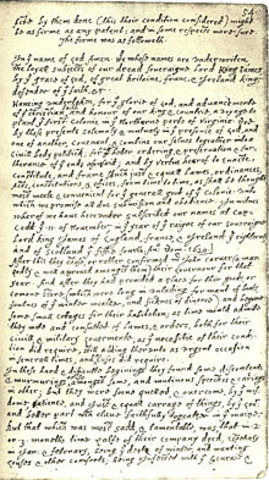 54
by them done (this their condition considered) might
be as firme as any patent; and in some respects more sure.
The forme was as followeth.
In yͤ name of god Amen. We whose names are underwriten,
the loyall subjects of our dread soveraigne Lord King James
by yͤ grace of god, of great Britaine, franc, & Ireland king,
defender of yͤ faith, &c
Haveing undertaken, for yͤ glorie of god, and advancemente
of yͤ christian faith and honour of our king & countrie, a voyage to
plant yͤ first colonie in yͤ Northerne parts of Virginia. Doe
by these presents solemnly & mutualy in yͤ presence of god, and
one of another, covenant, & combine our selves togeather into a
civill body politick; for our better ordering, & preservation & fur-
therance of yͤ ends aforesaid; and by vertue hearof to enacte,
constitute, and frame such just & equall lawes, ordinances,
Acts, constitutions, & offices, from time to time, as shall be thought
most meete & convenient for yͤ generall good of yͤ colonie: unto
which we promise all due submission and obedience. In witnes
wherof we have hereunder subscribed our names at Cap-
Codd yͤ .11. of November, in yͤ year of yͤ raigne of our soveraigne
Lord king James of England, france, & Ireland yͤ eighteenth
and of Scotland yͤ fiftie fourth. Ano: Dom. 1620.
After this they chose, or rather confirmed mr John Carver (a man
godly & well approved amongst them) their Governour for that
year. And after they had provided a place for their goods, or
comone store, (which were long in unlading for want of boats,
foulnes of yͤ winter weather, and sicknes of diverce) and begune
some small cottages for their habitation; as time would admitte
they mette and consulted of lawes, & orders, both for their
civill & military Govermente, as yͤ necessitie of their condi-
tion did require, still adding therunto as urgent occasion
in severall times, and cases did require.
In these hard & difficulte beginings they found some discontents
& murmurings amongst some, and mutinous speeches & cariags
in other; but they were soone quelled, & overcome, by yͤ wis-
dome, patience, and just & equall carrage of things, by yͤ Govr
and better part wch clave faithfully togeather in yͤ maine.
But that which was most sadd, & lamentable, was, that in .2.
or .3. moneths time halfe of their company dyed, espetialy
in Jan: & february, being yͤ depth of winter, and wanting
houses & other comforts; being infected with yͤ scurvie &